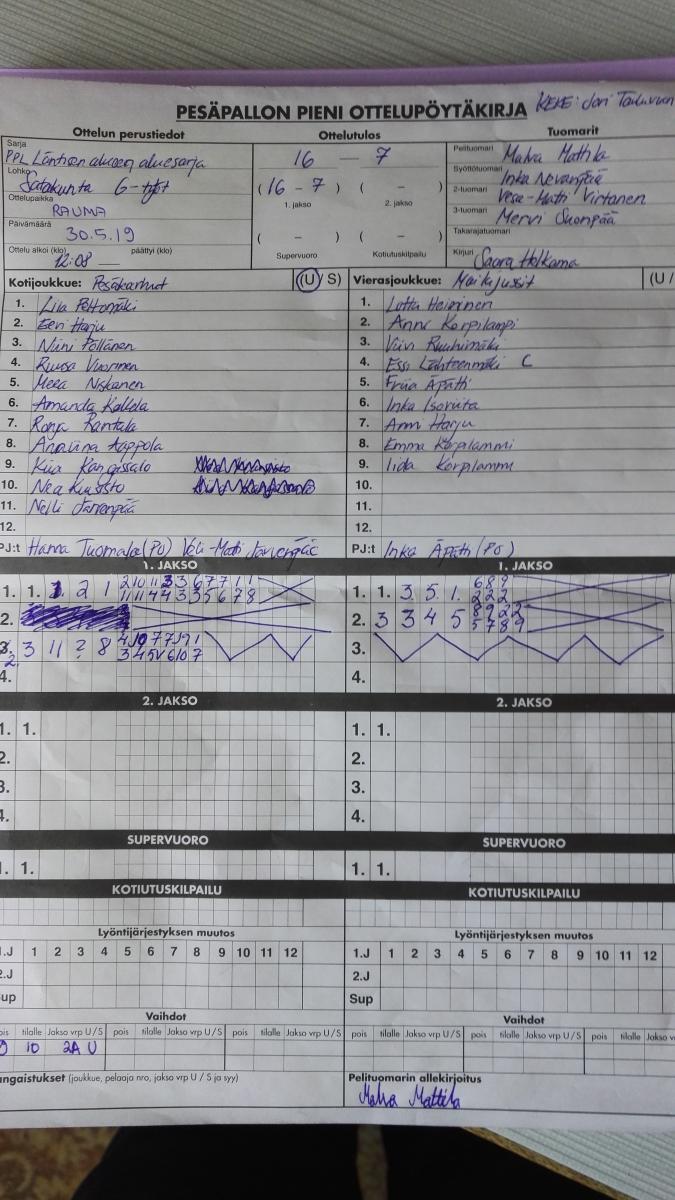 PESÄPALLON PIENI OTTELUPÖYTÄKIRJA
KEKE: Jari
Ottelun perustiedot Ottelutulos Tuomarit
Sarja
PPL Läntisen alueen aluesarja
Lohko
Satakunta G-tytöt
Ottelupaikka
RAUMA
Päivämäärä
30.5.19
Ottelu alkoi (klo) päättyi (klo)
12:08
16 — 7
(16 - 7) ( - )
1. jakso 2. jakso
( - ) ( - )
Supervuoro Kotiutuskilpailu
Pelituomari Malva Mattila
Syöttötuomari Inka Nevanpää
2-tuomari Vesa-Matti Virtanen
3-tuomari Mervi Suonpää
Takarajatuomari
Kirjuri Saara Holkama
Kotijoukkue: Pesäkarhut (U/ S)
1. Lila Peltomäki
2. Eevi Harju
3. Niini Pöllänen
4. Ruusa Vuorinen
5. Meea Niskanen
6. Amanda Kallela
7. Ronja Rantala
8. Anniina Aappola
9. Kiia Kangassalo
10. Nea Kuusisto
11. Nelli Järvenpää
12.
PJ:t Hanna Tuomala (PU) Veli-Matti Järvenpää
Vierasjoukkue: Maikijussit (U /
1. Lotta Heininen
2. Anni Korpilampi
3. Viivi Ruuhimäki
4. Essi Lähteenmäki C
5. Friia Äpätti
6. Inka Isoviita
7. Anni Harju
8. Emma Korpilammi
9. Iida Korpilammi
10.
11.
12.
PJ:t Inka Äpätti (PU)
1. JAKSO 1. JAKSO
1. 1. 2 1
2.
3 11 2 8
4.
1. 1. 3 5 1 689
222
2. 3 3 4 5
3.
4.
2. JAKSO 2. JAKSO
1. 1. 1. 1.
2. 2.
3. 3.
4. 4.
SUPERVUORO SUPERVUORO
1. 1. 1. 1.
KOTIUTUSKILPAILU KOTIUTUSKILPAILU
Lyöntijärjestyksen muutos Lyöntijärjestyksen muutos
1.J 1 2 3 4 5 6 7 8 9 10 11 12 1.J 1 2 3 4 5 6 7 8 9 10 11 12
2.J 2.J
Sup Sup
Vaihdot Vaihdot
pois tilalle Jakso vrp U/S pois tilalle Jakso vrp U/S pois tilalle Jakso vrp U/S pois tilalle Jakso vrp U/S pois tilalle Jakso vrp U/S pois tilalle Jakso
10 2A U
angaistukset (joukkue, pelaaja nro, jakso vrp U / S ja syy)
Pelituomarin allekirjoitus
Malva Mattila